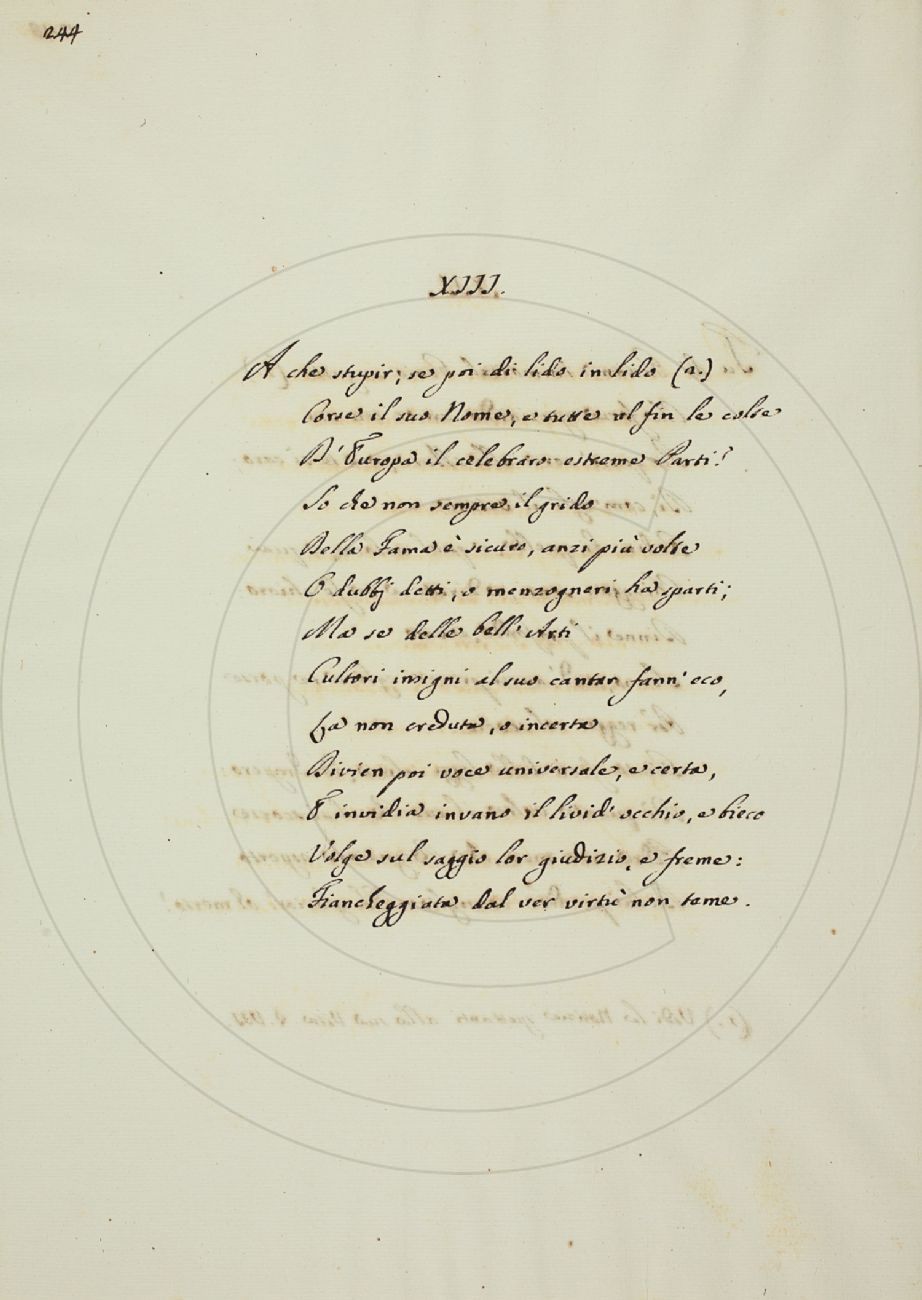 244
XIII.
A che stupir; se poi di lido in lido (a.)
Corse il suo Nome, e tutte al fin le colse
D' Europa il celebraro estreme Parti?
So che non sempre il grido
Della Fama è sicuro, anzi più volte
O dubbj detti, o menzogneri ha sparti;
Ma se delle bell' Arti
Cultori insigni al suo cantar fann' eco,
La non creduta, o incerta
Divien poi voce universale, e certa,
E invidia invano il livid' occhio, e bieco
Volge sul saggio lor giudizio, e freme:
Fiancheggiata dal ver virtù non teme.